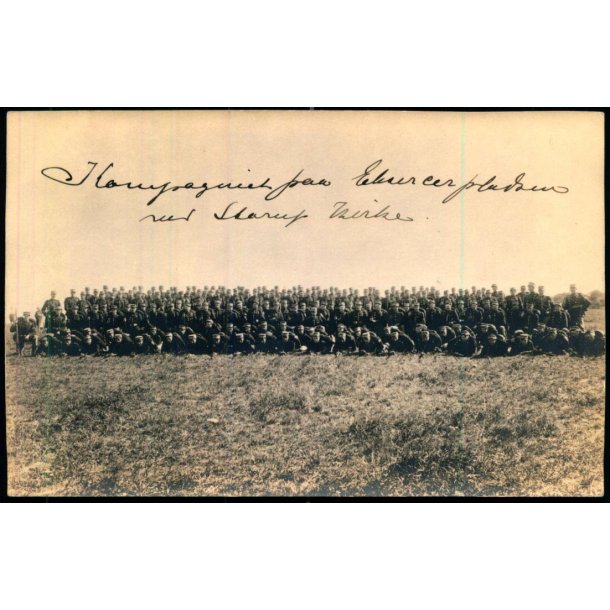 Kompagniet paa Eksercerpladsen
ved Starup Kirke.